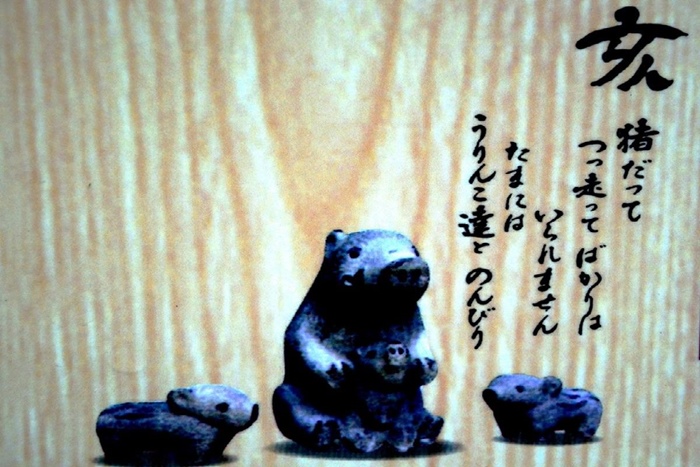 亥
猪だって
つっ走ってばかりは
いられません
たまには
うりんこ達と のんびり